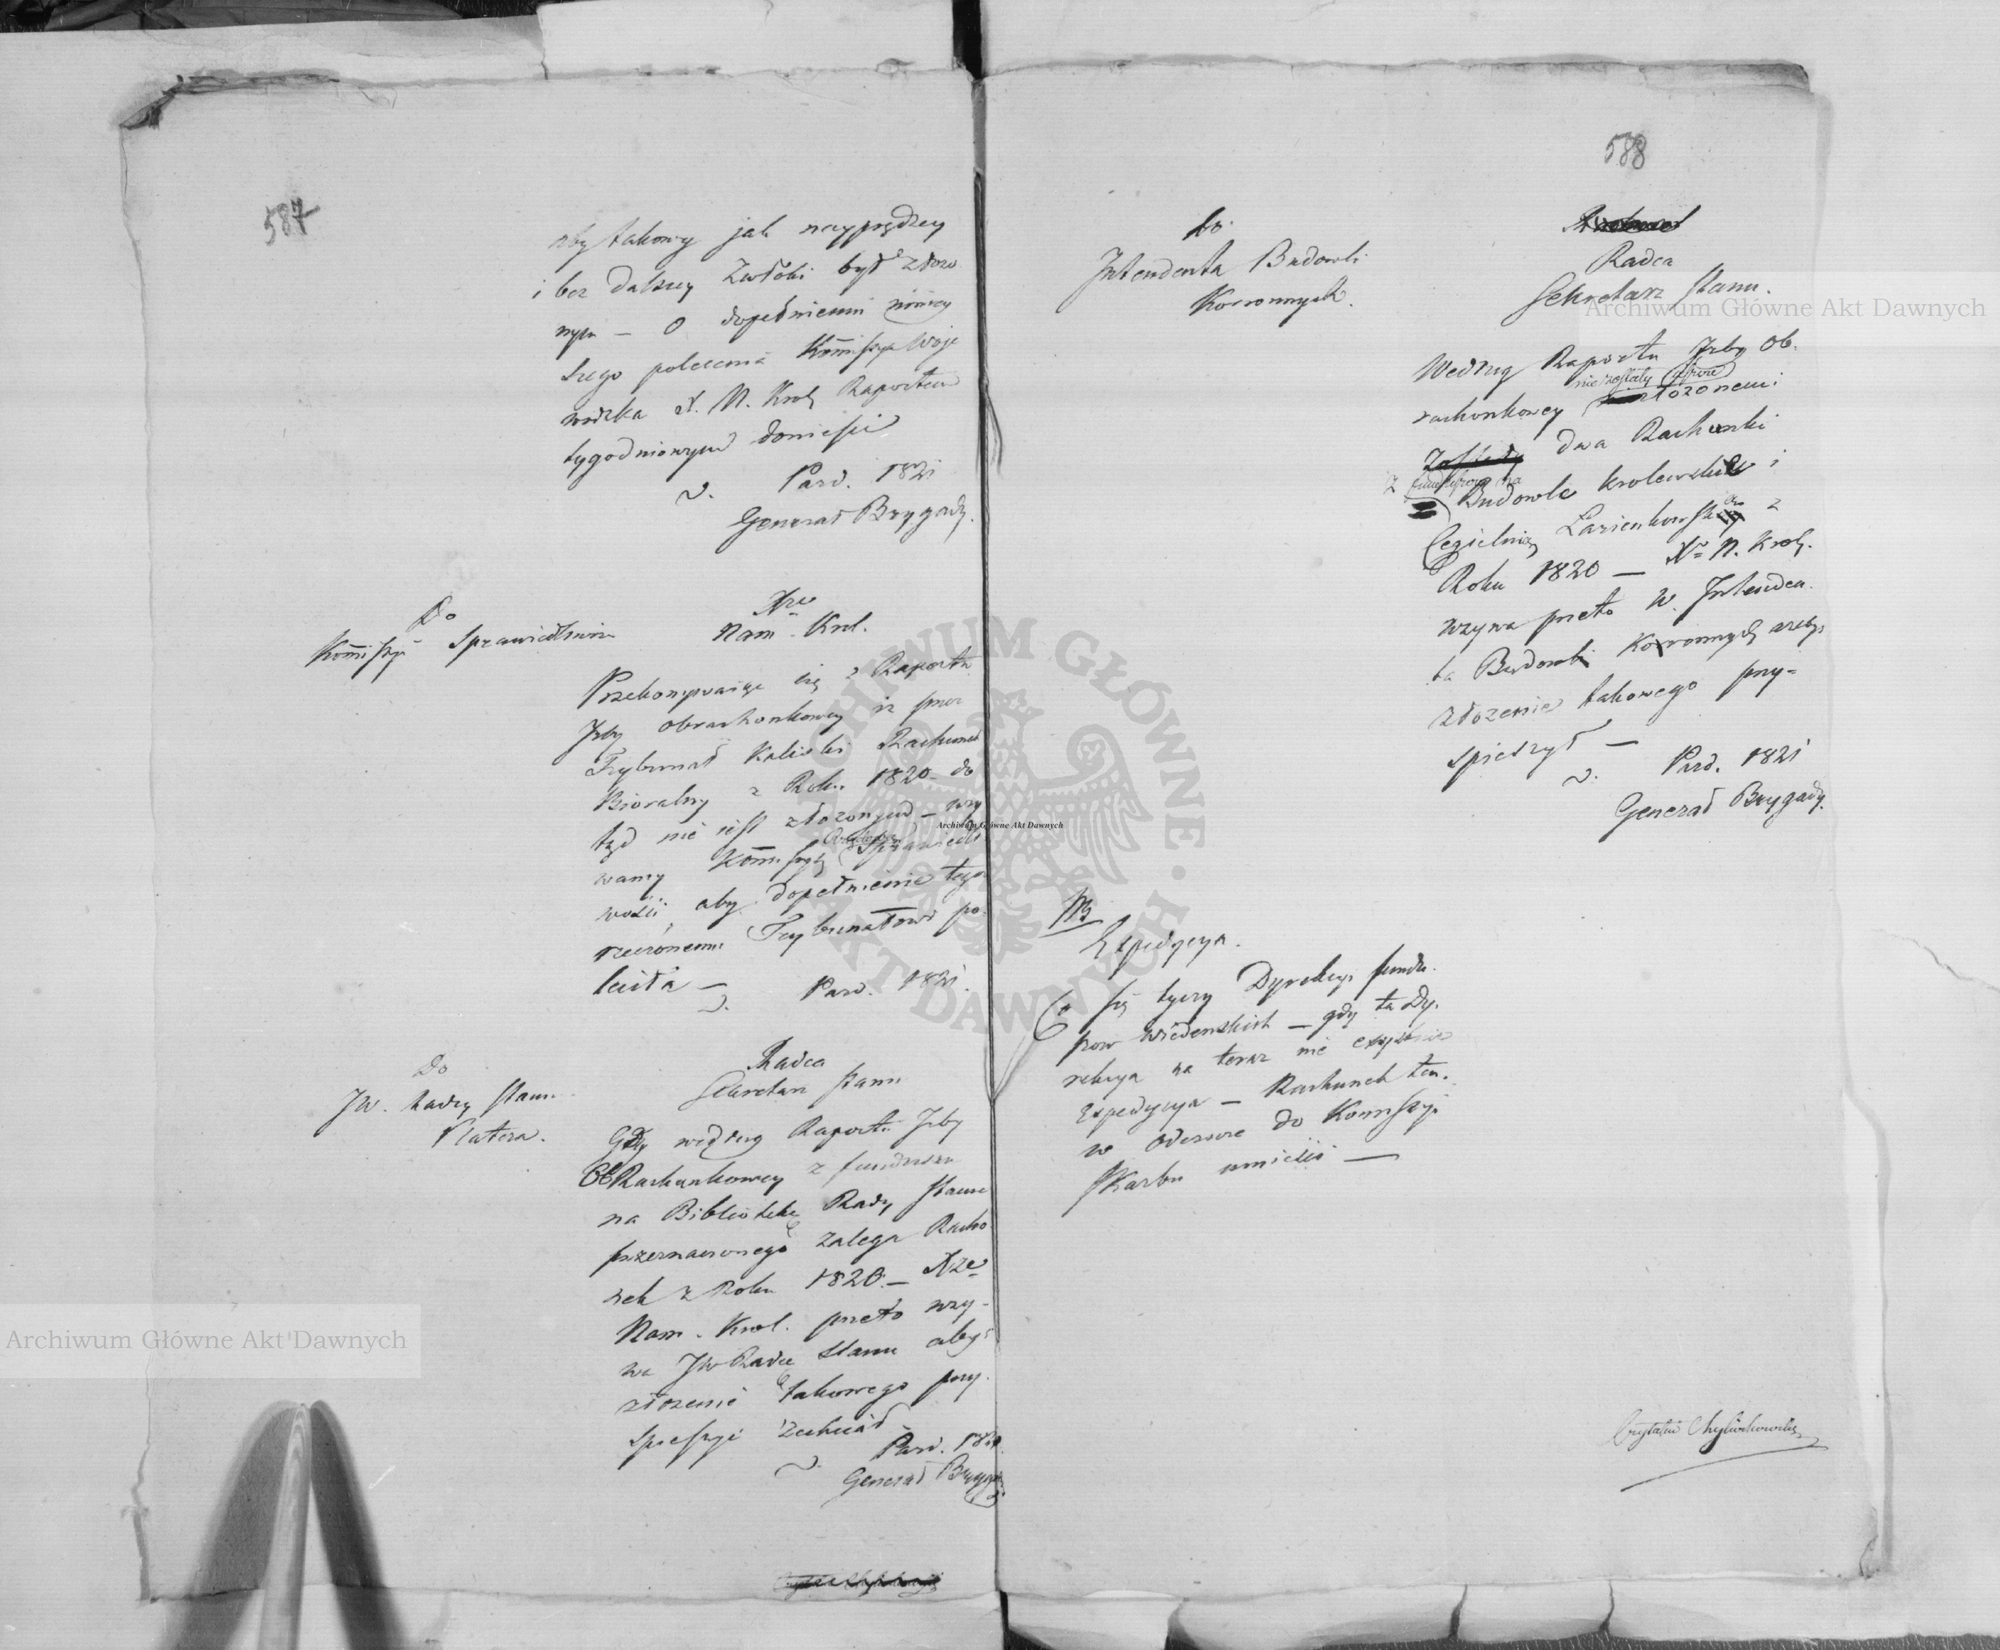 587
aby takowy jak nayprędzey
i bez dalszey zwłoki był złożo
nym — O dopełnieniu niniey
szego polecenia Kommissya Woje
wodzka X. N. Król. Raportem
tygodniowym doniesie
Pazd. 1821
Generał Brygady.
Do
Kommissyi Sprawiedliwości
Xże
Nam. Krol.
Przekonywaiąc się z Raportu
Jzby Obrachunkowey iż przez
Trybunał Kaliski Rachunek
Bióralny z Roku 1820 do
tąd nie iest złożonym — wzy
wamy Kommissyą Sprawiedli
wości, aby dopełnienie tego
rzeczonemu Trybunałowi po
leciła —
Pazd. 1821.
Do
JW. Radcy Stanu
Platera.
Radca
Sekretarz Stanu
Gdy według Raportu Jzby
ObRachunkowey z funduszu
na Bibliotekę Rady Stanu
przeznaczonego zalega Rachu
nek z Roku 1820. — Xże
Nam. Krol. przeto wzy-
wa JW Radcę Stanu abyś
złożenie takowego przy-
spieszyć zechciał
Pazd. 1821.
Generał Brygady
588
Do
Jntendenta Budowli
Koronnych.
Radca
Sekretarz Stanu.
Według Raportu Jzby Ob-
nie zostały
rachunkowey złożonemi
dwa Rachunki
z
Budowle Krolewskie i
Cegielnię Łazienkowską z
Roku 1820 — Xże N. Krol.
wzywa przeto W. Jntenden
ta Budowli Koronnych ażeby
złożenie takowego przy-
spieszył —
Pazd. 1821
Generał Brygady.
NB
Expedycya.
Co się tyczy Dyrekcyi fundu
szow Wiedenskich — gdy ta Dy-
rekcya na teraz nie exystuie
Expedycya — Rachunek ten
w odezwie do Kommissyi
Skarbu umieści —
Archiwum Główne Akt Dawnych
Archiwum Główne Akt Dawnych
Archiwum Główne Akt Dawnych
ARCHIWUM GŁÓWNE AKT DAWNYCH